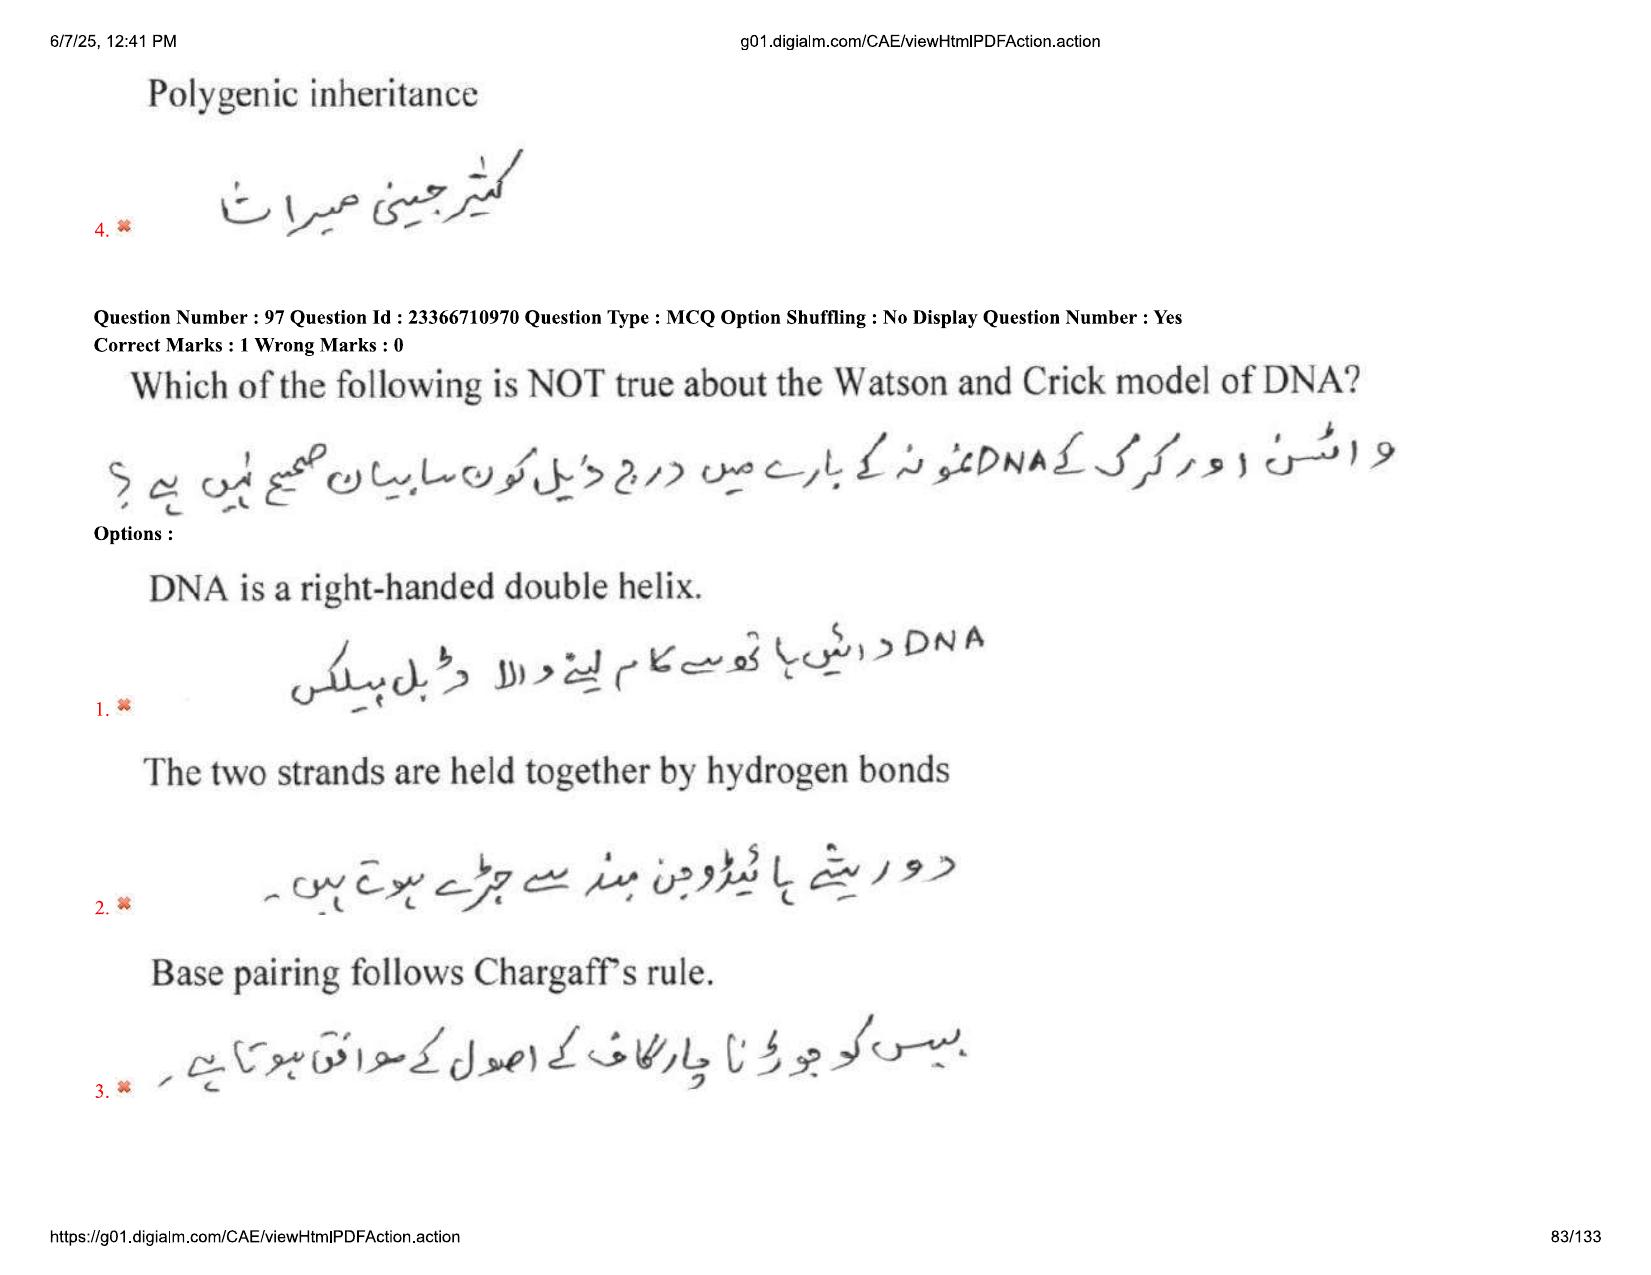 6/7/25, 12:41 PM g01.digialm.com/CAE/viewHtmlPDFAction.action
Polygenic inheritance
کثیر جینی میراث
4.
Question Number : 97 Question Id : 23366710970 Question Type : MCQ Option Shuffling : No Display Question Number : Yes
Correct Marks : 1 Wrong Marks : 0
Which of the following is NOT true about the Watson and Crick model of DNA?
واٹسن اور کرک کے DNA نمونہ کے بارے میں درج ذیل کون سا بیان صحیح نہیں ہے ؟
Options :
DNA is a right-handed double helix.
DNA دائیں ہاتھ سے کام لینے والا ڈبل ہیلکس
1.
The two strands are held together by hydrogen bonds
دو ریشے ہائیڈروجن بند سے جڑے ہوتے ہیں۔
2.
Base pairing follows Chargaff's rule.
بیس کو جوڑنا چارگاف کے اصول کے موافق ہوتا ہے۔
3.
https://g01.digialm.com/CAE/viewHtmlPDFAction.action 83/133